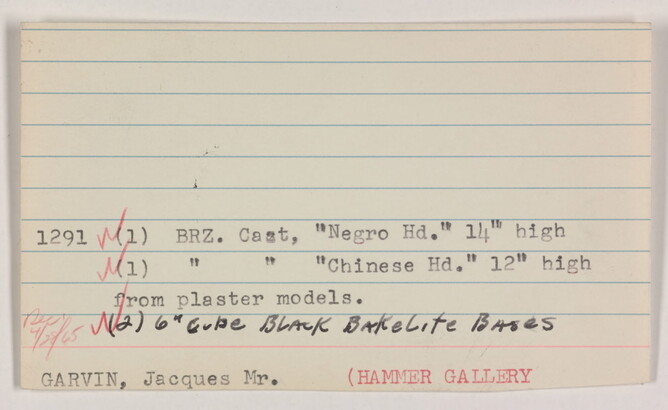 1291 (1) BRZ. Cast, "Negro Hd." 14" high
(1) " " "Chinese Hd." 12" high
from plaster models.
(2) 6" Cube BLACK BAKELITE BASES
4/29/65
GARVIN, Jacques Mr. (HAMMER GALLERY